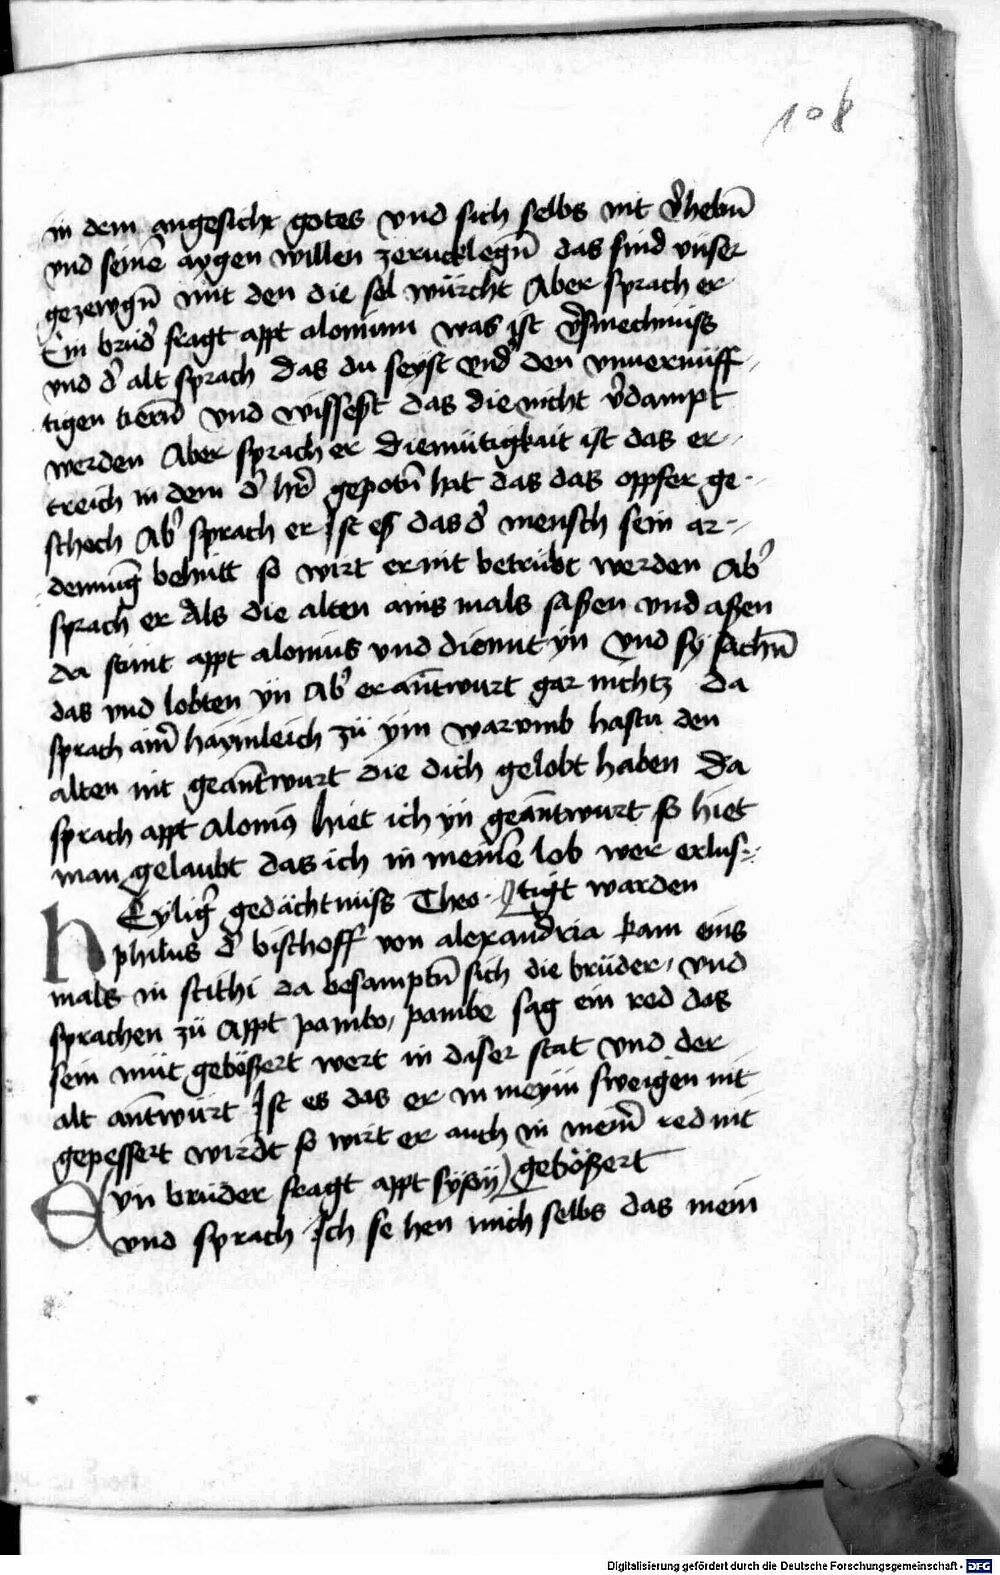 108
in dem angesicht gotes vnd sich selbs nit v̾hebn̄
vnd seinē aygen willen zerucklegn̄ das sind vnser
gezewgn̄ mit den die sel würcht Aber sprach er
Ein brud̾ fragt appt alonium was ist v̾smechnuss
vnd d̾ alt sprach das du seyst vnd̾ den vnuernüff-
tigen tiern̄ vnd wissest das die nicht v̾dampt
werden Aber sprach er Diemütigkait ist das er-
treich in dem d̾ hr̄ gepotn̄ hat das das oppfer ge-
schech Ab̾ sprach er Ist es das d̾ mensch sein ar-
dennūg behütt so wirt er nit betrübt werden Ab̾
sprach er Als die alten ains mals saßen vnd aßen
da stunt appt alonius vnd diennt yn Vnd sy sachn̄
das vnd lobten yn Ab̾ er antwurt gar nichtz da
sprach ain̄ haymleich zü ym warvmb hastu den
alten nit geantwurt die dich gelobt haben Da
sprach appt Alonius hiet ich yn geantwurt so hiet
man gelaubt das ich in meinē lob wer erlus-
tigt warden
HEylig̾ gedächtnuss Theo-
philus d̾ bischoff von alexandria kam eins
mals in stithi da besamptn̄ sich die brüder, vnd
sprachen zü Appt pambo, pambe sag ein red das
sein müt gebößert wert in daser stat vnd der
alt antwürt Ist es das er in meym sweigen nit
gepessert wirdt so wirt er auch in mein̄ red nit
gebößert
EYn brüder fragt appt sysoy
vnd sprach Ich se hen mich selbs das mein
Digitalisierung gefördert durch die Deutsche Forschungsgemeinschaft - DFG